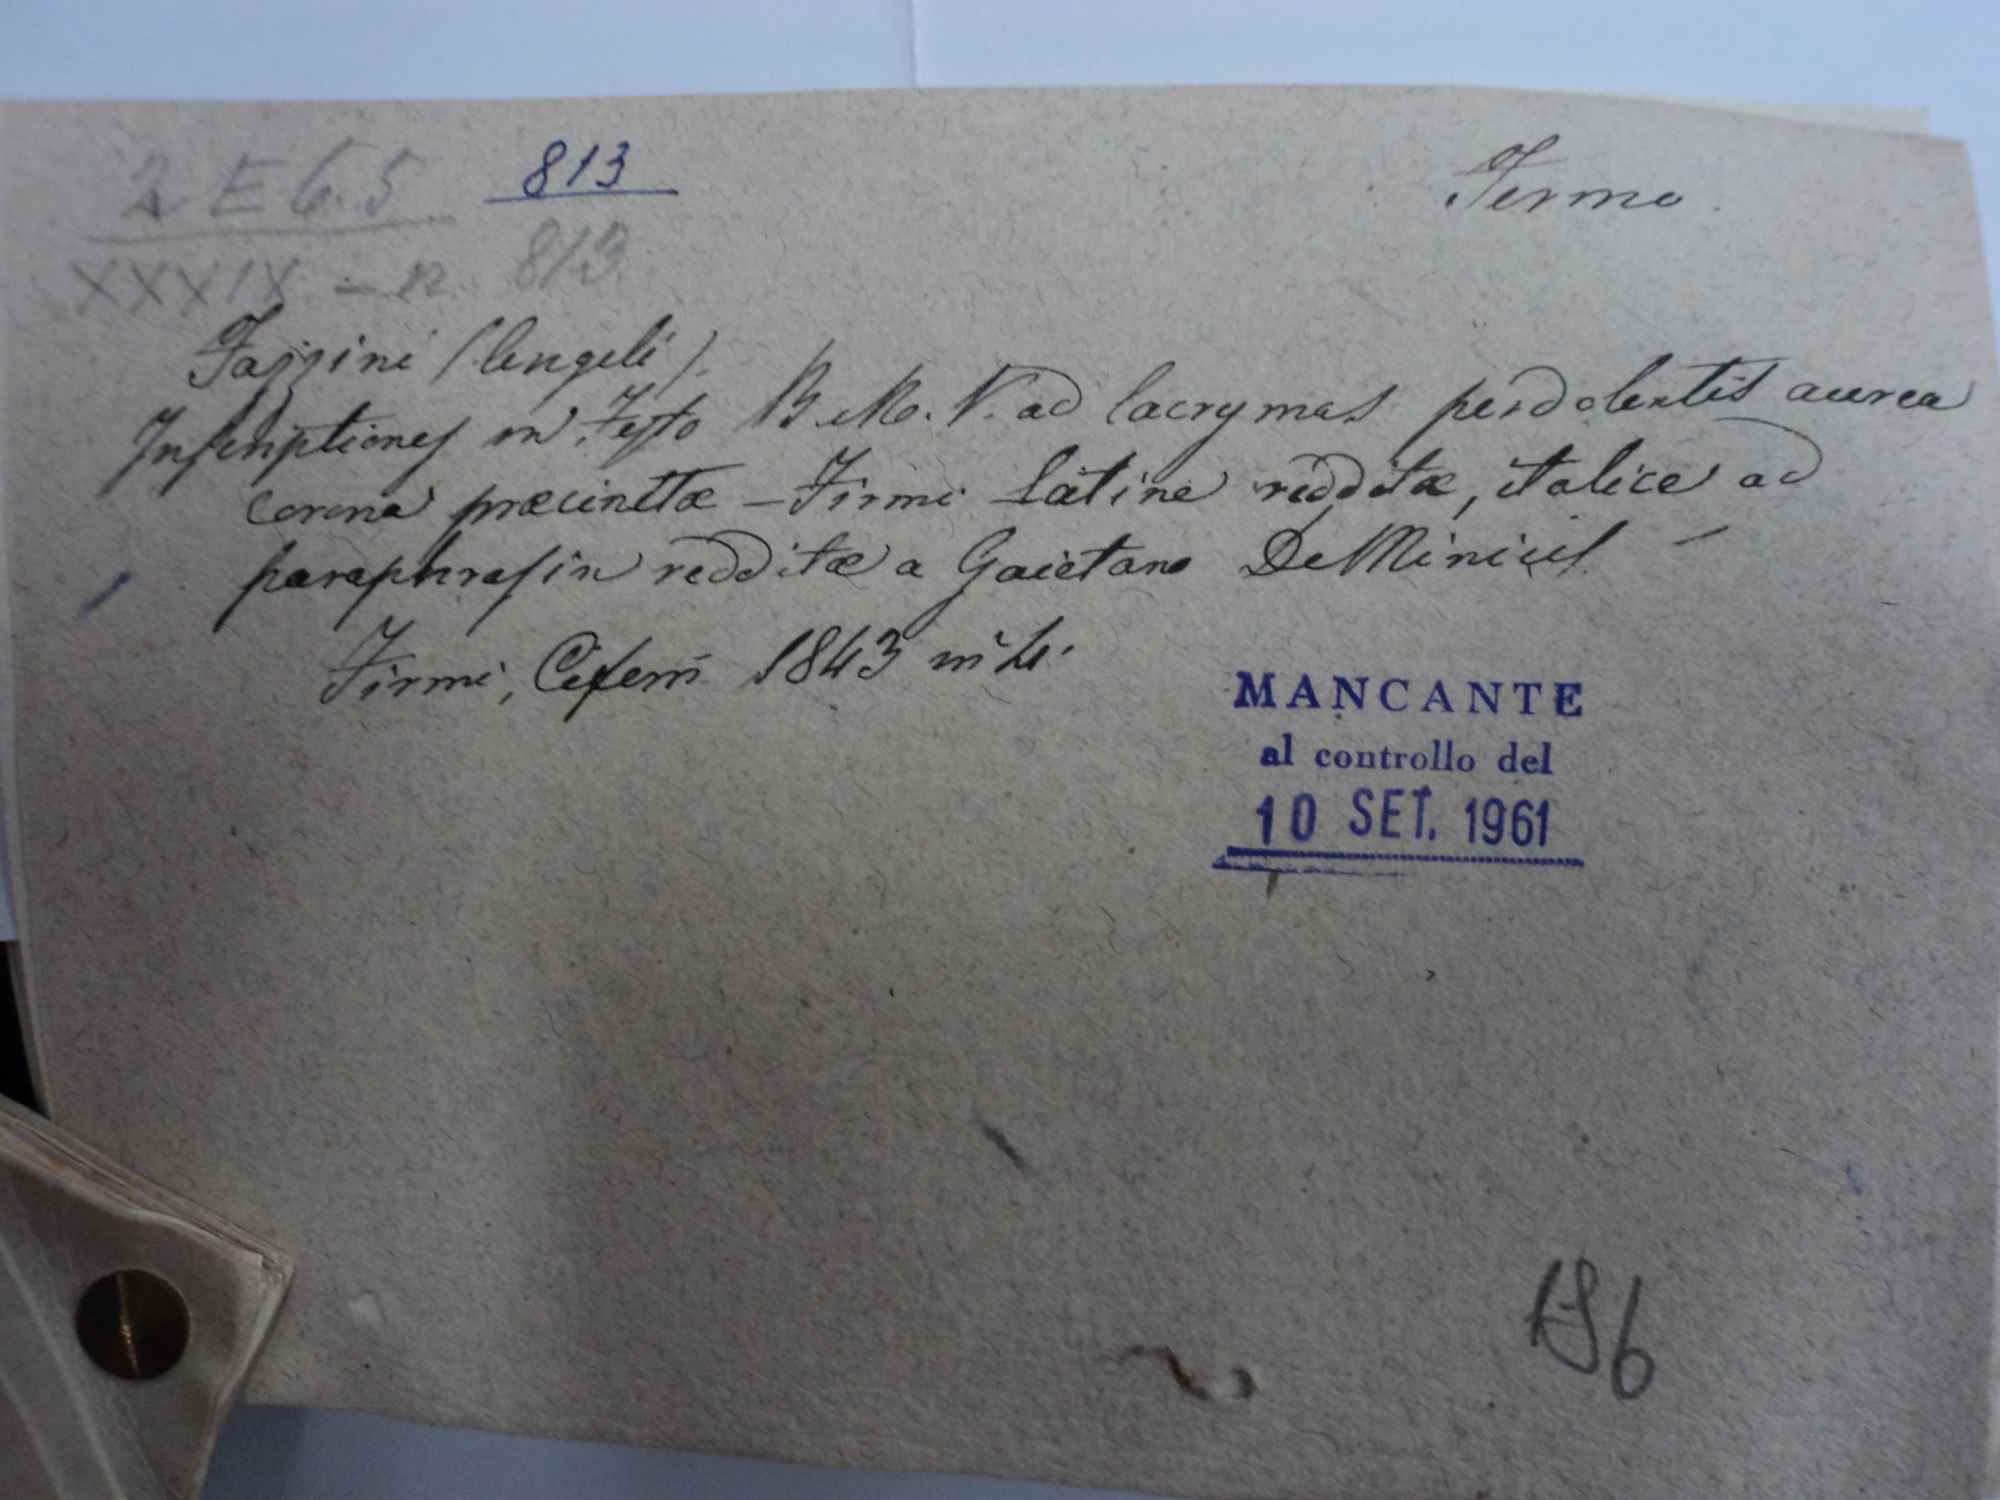 2 E 6.5 813
XXXIX - n. 813
Fermo.
Fazzini (Angeli).
Inscriptiones in Festo B. M. V. ad lacrymas perdolentis aurea
corona præcinctæ - Firmi latine redditæ, italice ad
paraphrasin redditæ a Gaietano De Miniciis -
Firmi, 1843 in 4.
MANCANTE
al controllo del
10 SET. 1961